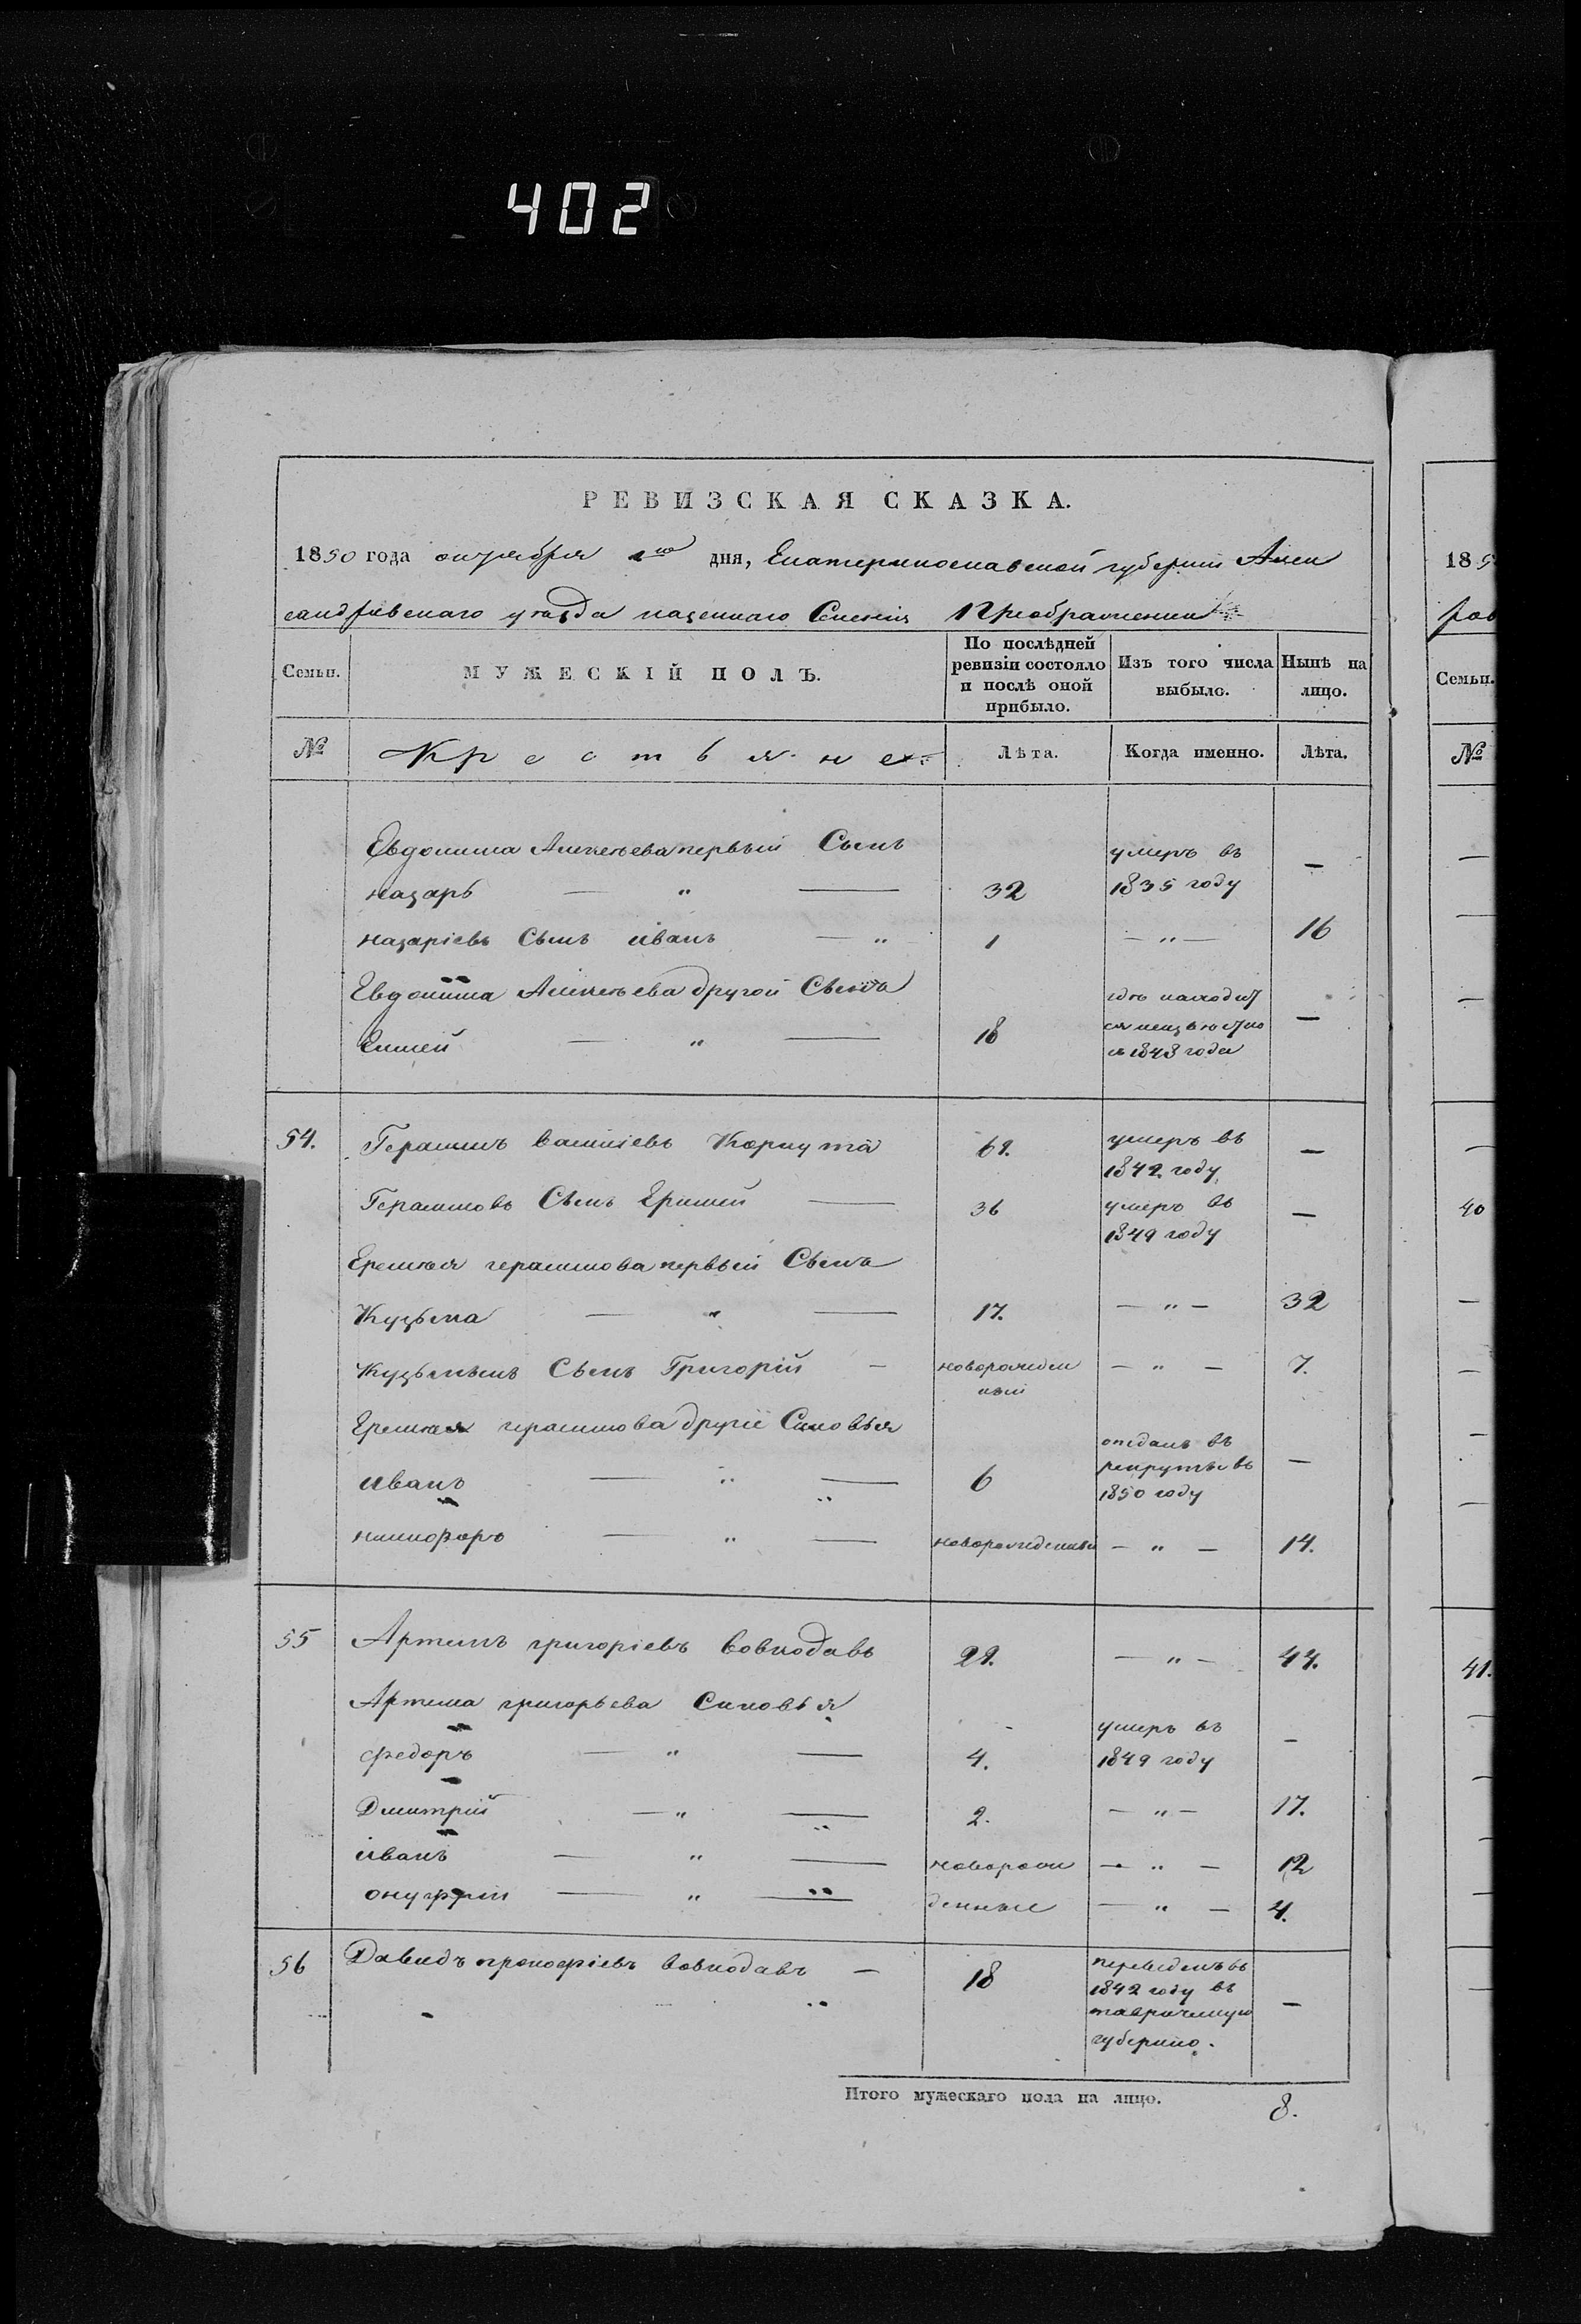 402
РЕВИЗСКАЯ СКАЗКА.
1850 года октября 1го дня, Екатеринославской губернии Алек
сандровскаго уезда казеннаго Селения Преображенки
Семьи. МУЖЕСКІЙ ПОЛЪ. По послѣдней ревизіи состояло и послѣ оной прибыло. Изъ того числа выбыло. Нынѣ на лицо.
№ Крестьяне Лѣта. Когда именно. Лѣта.
Евдокима Алексеева первый Сынъ
назаръ — " — 32 умеръ въ 1835 году —
назаріевъ Сынъ иванъ — " 1 — " — 16
Евдокима Алексеева другой Сынъ
— " — 18 где находит
ся неизвестно
с 1848 года —
54. Герасимъ василіевъ Корнута 61. умеръ въ 1842 году —
Герасимовъ Сынъ Еримей — 36 умеръ въ 1849 году —
Еремея герасимова первый Сынъ
Кузьма — " — 17. — " — 32
Кузьминъ Сынъ Григорій — новорожден
ный — " — 7.
Еремея герасимова другіе Синовья
иванъ — " — 6 отданъ въ
рекруты въ
1850 году —
никифоръ — " — новорожденный — " — 14.
55 Артемъ григоріевъ вовкодавъ 29. — " — 44.
Артема григорьева Синовья
федоръ — " — 4. умеръ въ 1849 году —
Дмитрій — " — 2. — " — 17.
иванъ — " — новорож — " — 12
онуфрій — " — денные — " — 4.
56 Давидъ прокофіевъ вовкодавъ — 18 переведенъ въ
1842 году въ
таврическую
губернию. —
Итого мужескаго пола на лицо. 8.
185
ров
Семьи.
№
40
41.